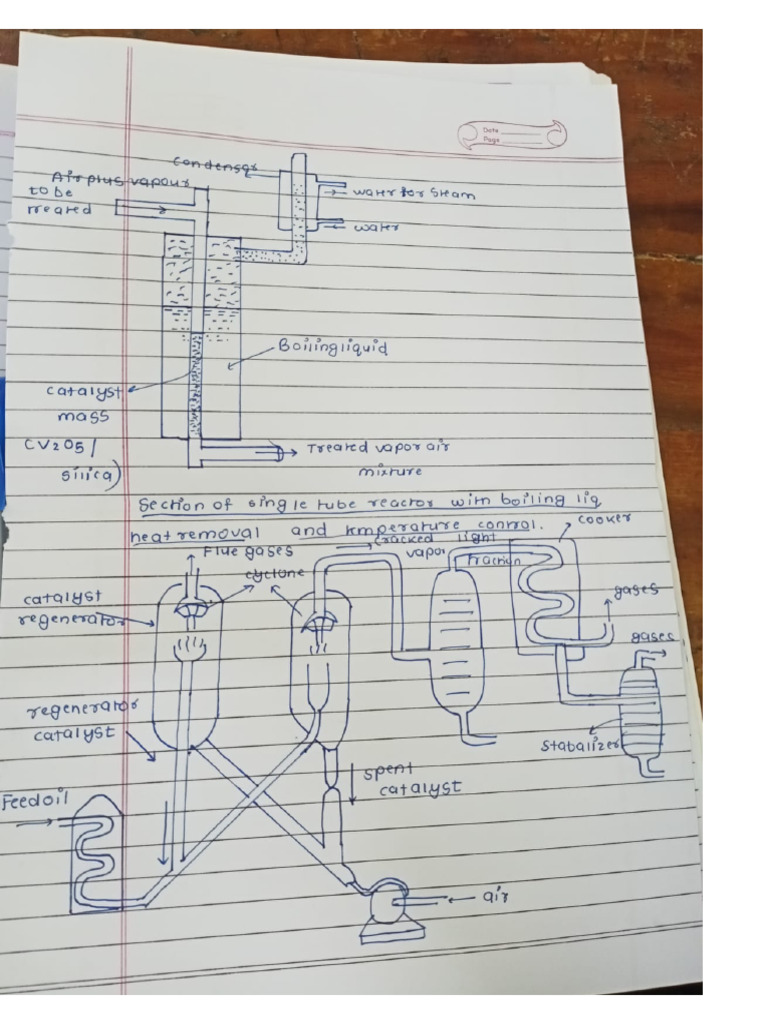 Date
Page
condensor
Air plus vapour
to be
treated
water for steam
water
Boiling liquid
catalyst
mass
CV2O5/
silica)
Treated vapor air
mixture
Section of single tube reactor with boiling liq
heat removal and temperature control.
cooker
cracked light
vapor fraction
Flue gases
cyclone
catalyst
regenerator
gases
gases
regenerator
catalyst
stabalizer
spent
catalyst
Feed oil
air